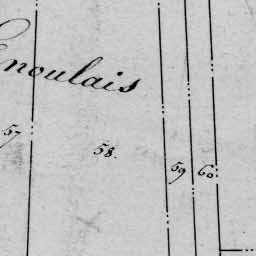 noulais
57
58.
59
60